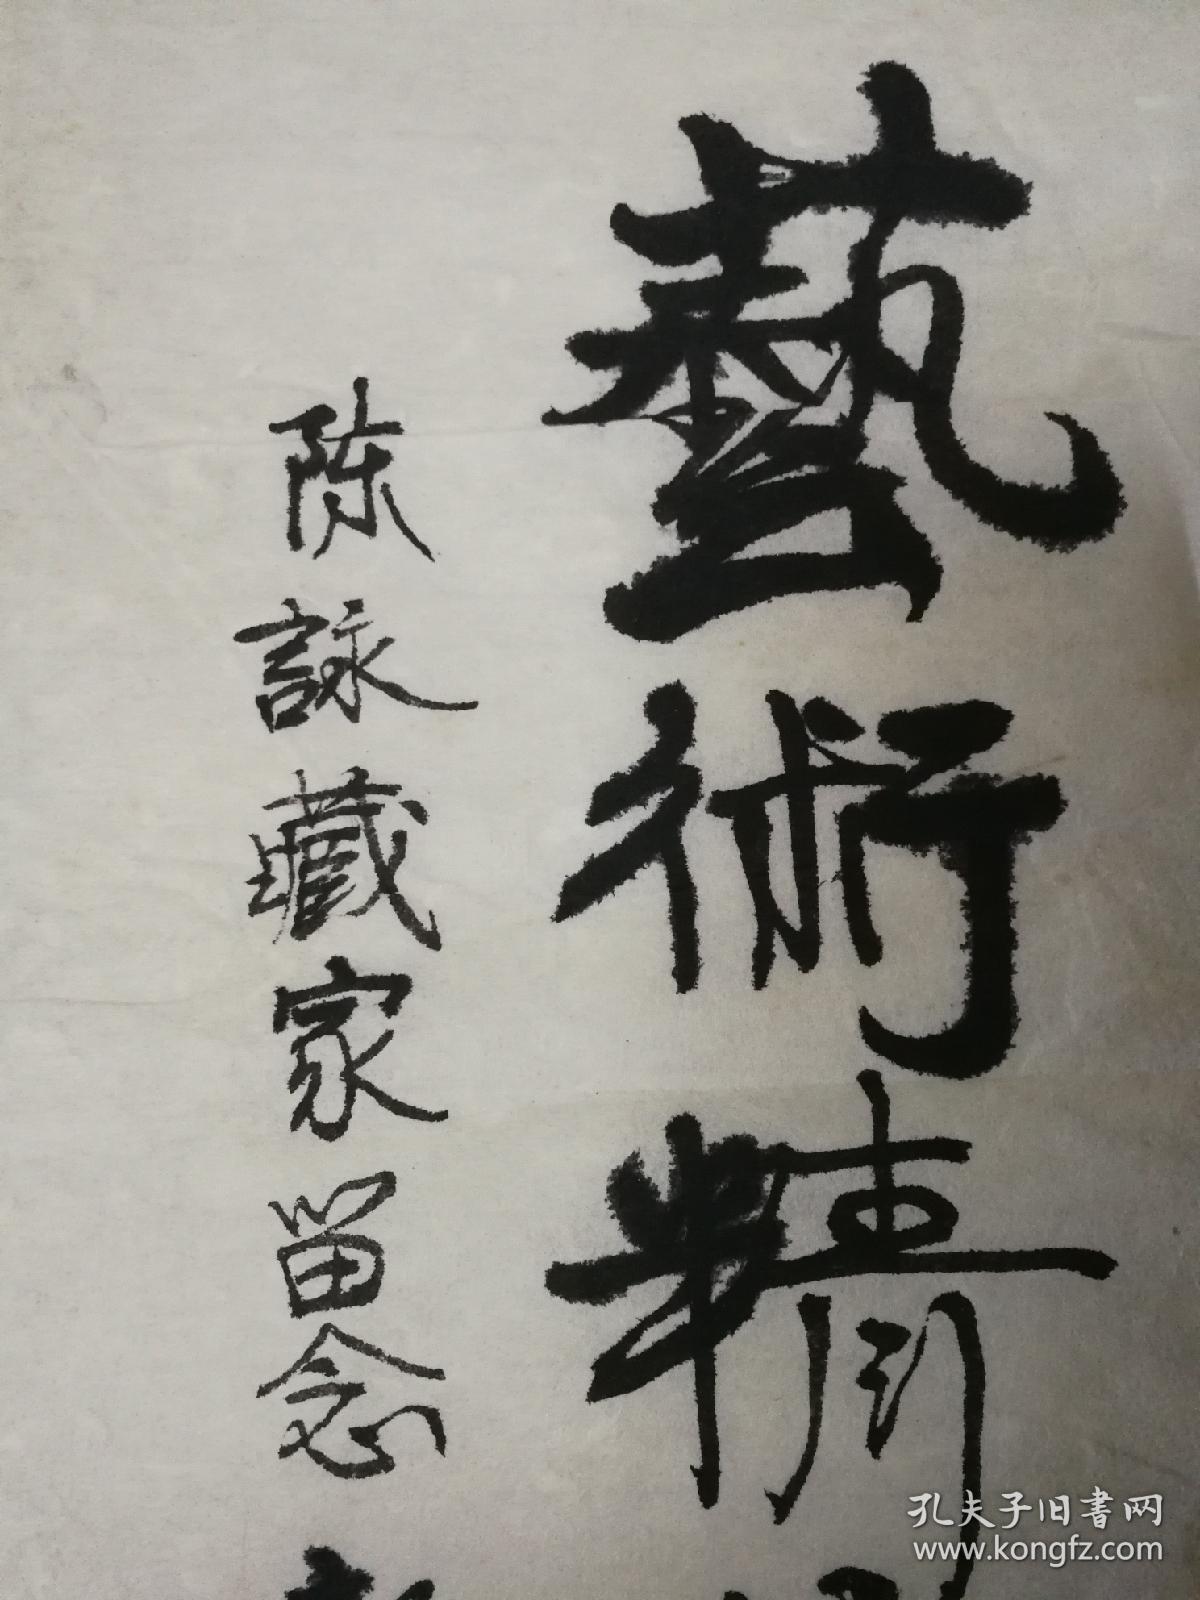 藝術精
陈詠藏家留念
孔夫子旧书网
www.kongfz.com